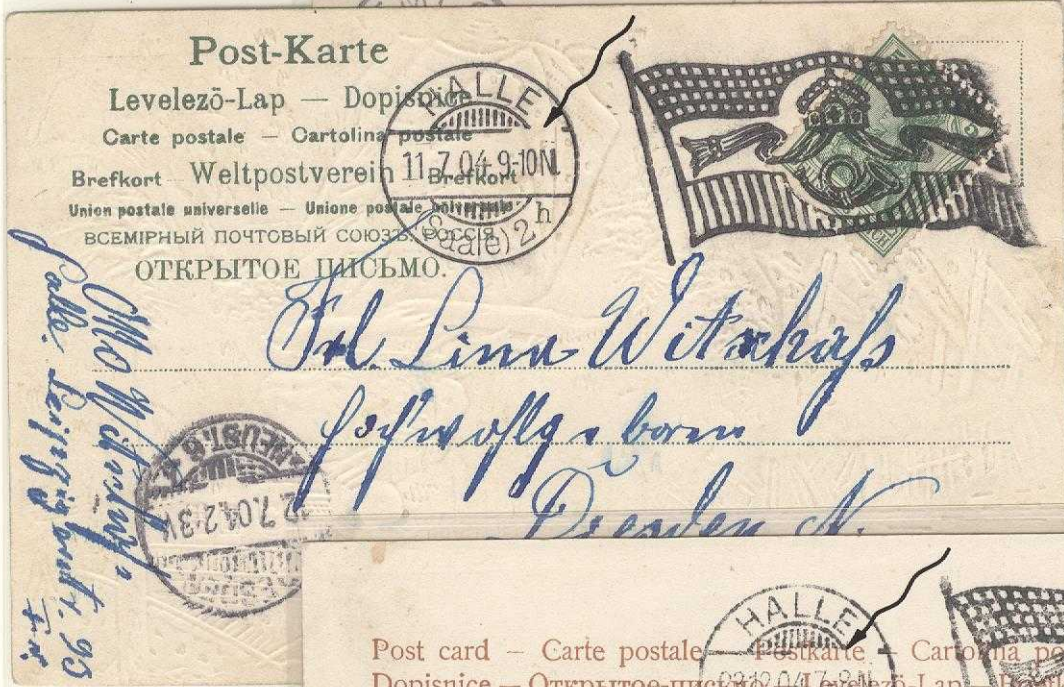 Post-Karte
Levelező-Lap — Dopisnice
Carte postale — Cartolina postale
Brefkort Weltpostverein Brefkort
Union postale universelle — Unione postale universale
ВСЕМІРНЫЙ ПОЧТОВЫЙ СОЮЗЪ. РОССІЯ
ОТКРЫТОЕ ПИСЬМО.
HALLE
11.7.04.9-10N.
(Saale) 2 h
Frl. Lina
Hochwohlgeboren
Dresden N.
Halle, Leipzigerstr. 95
NEUST. 6
12.7.04.2-3V
HALLE
Post card — Carte postale — Postkarte — Cartolina po
Dopisnice — Открытое-письмо — Levelező-Lap
12.04.7-8N